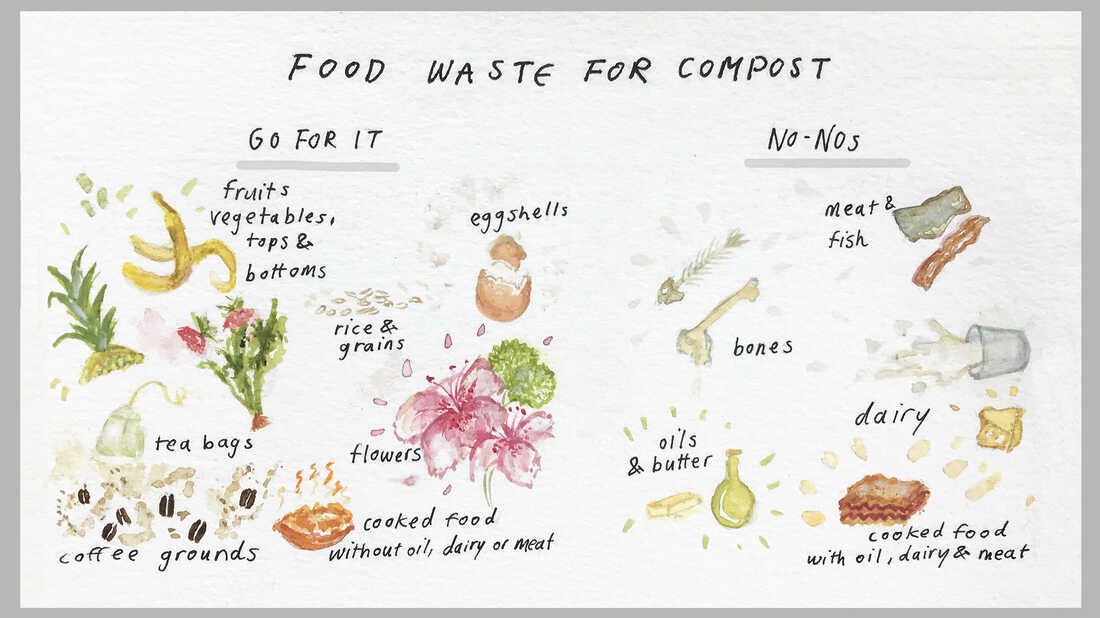 FOOD WASTE FOR COMPOST
GO FOR IT
fruits
vegetables,
tops &
bottoms
eggshells
rice &
grains
tea bags
flowers
coffee grounds
cooked food
without oil, dairy or meat
NO-NOs
meat &
fish
bones
dairy
oils
& butter
cooked food
with oil, dairy & meat